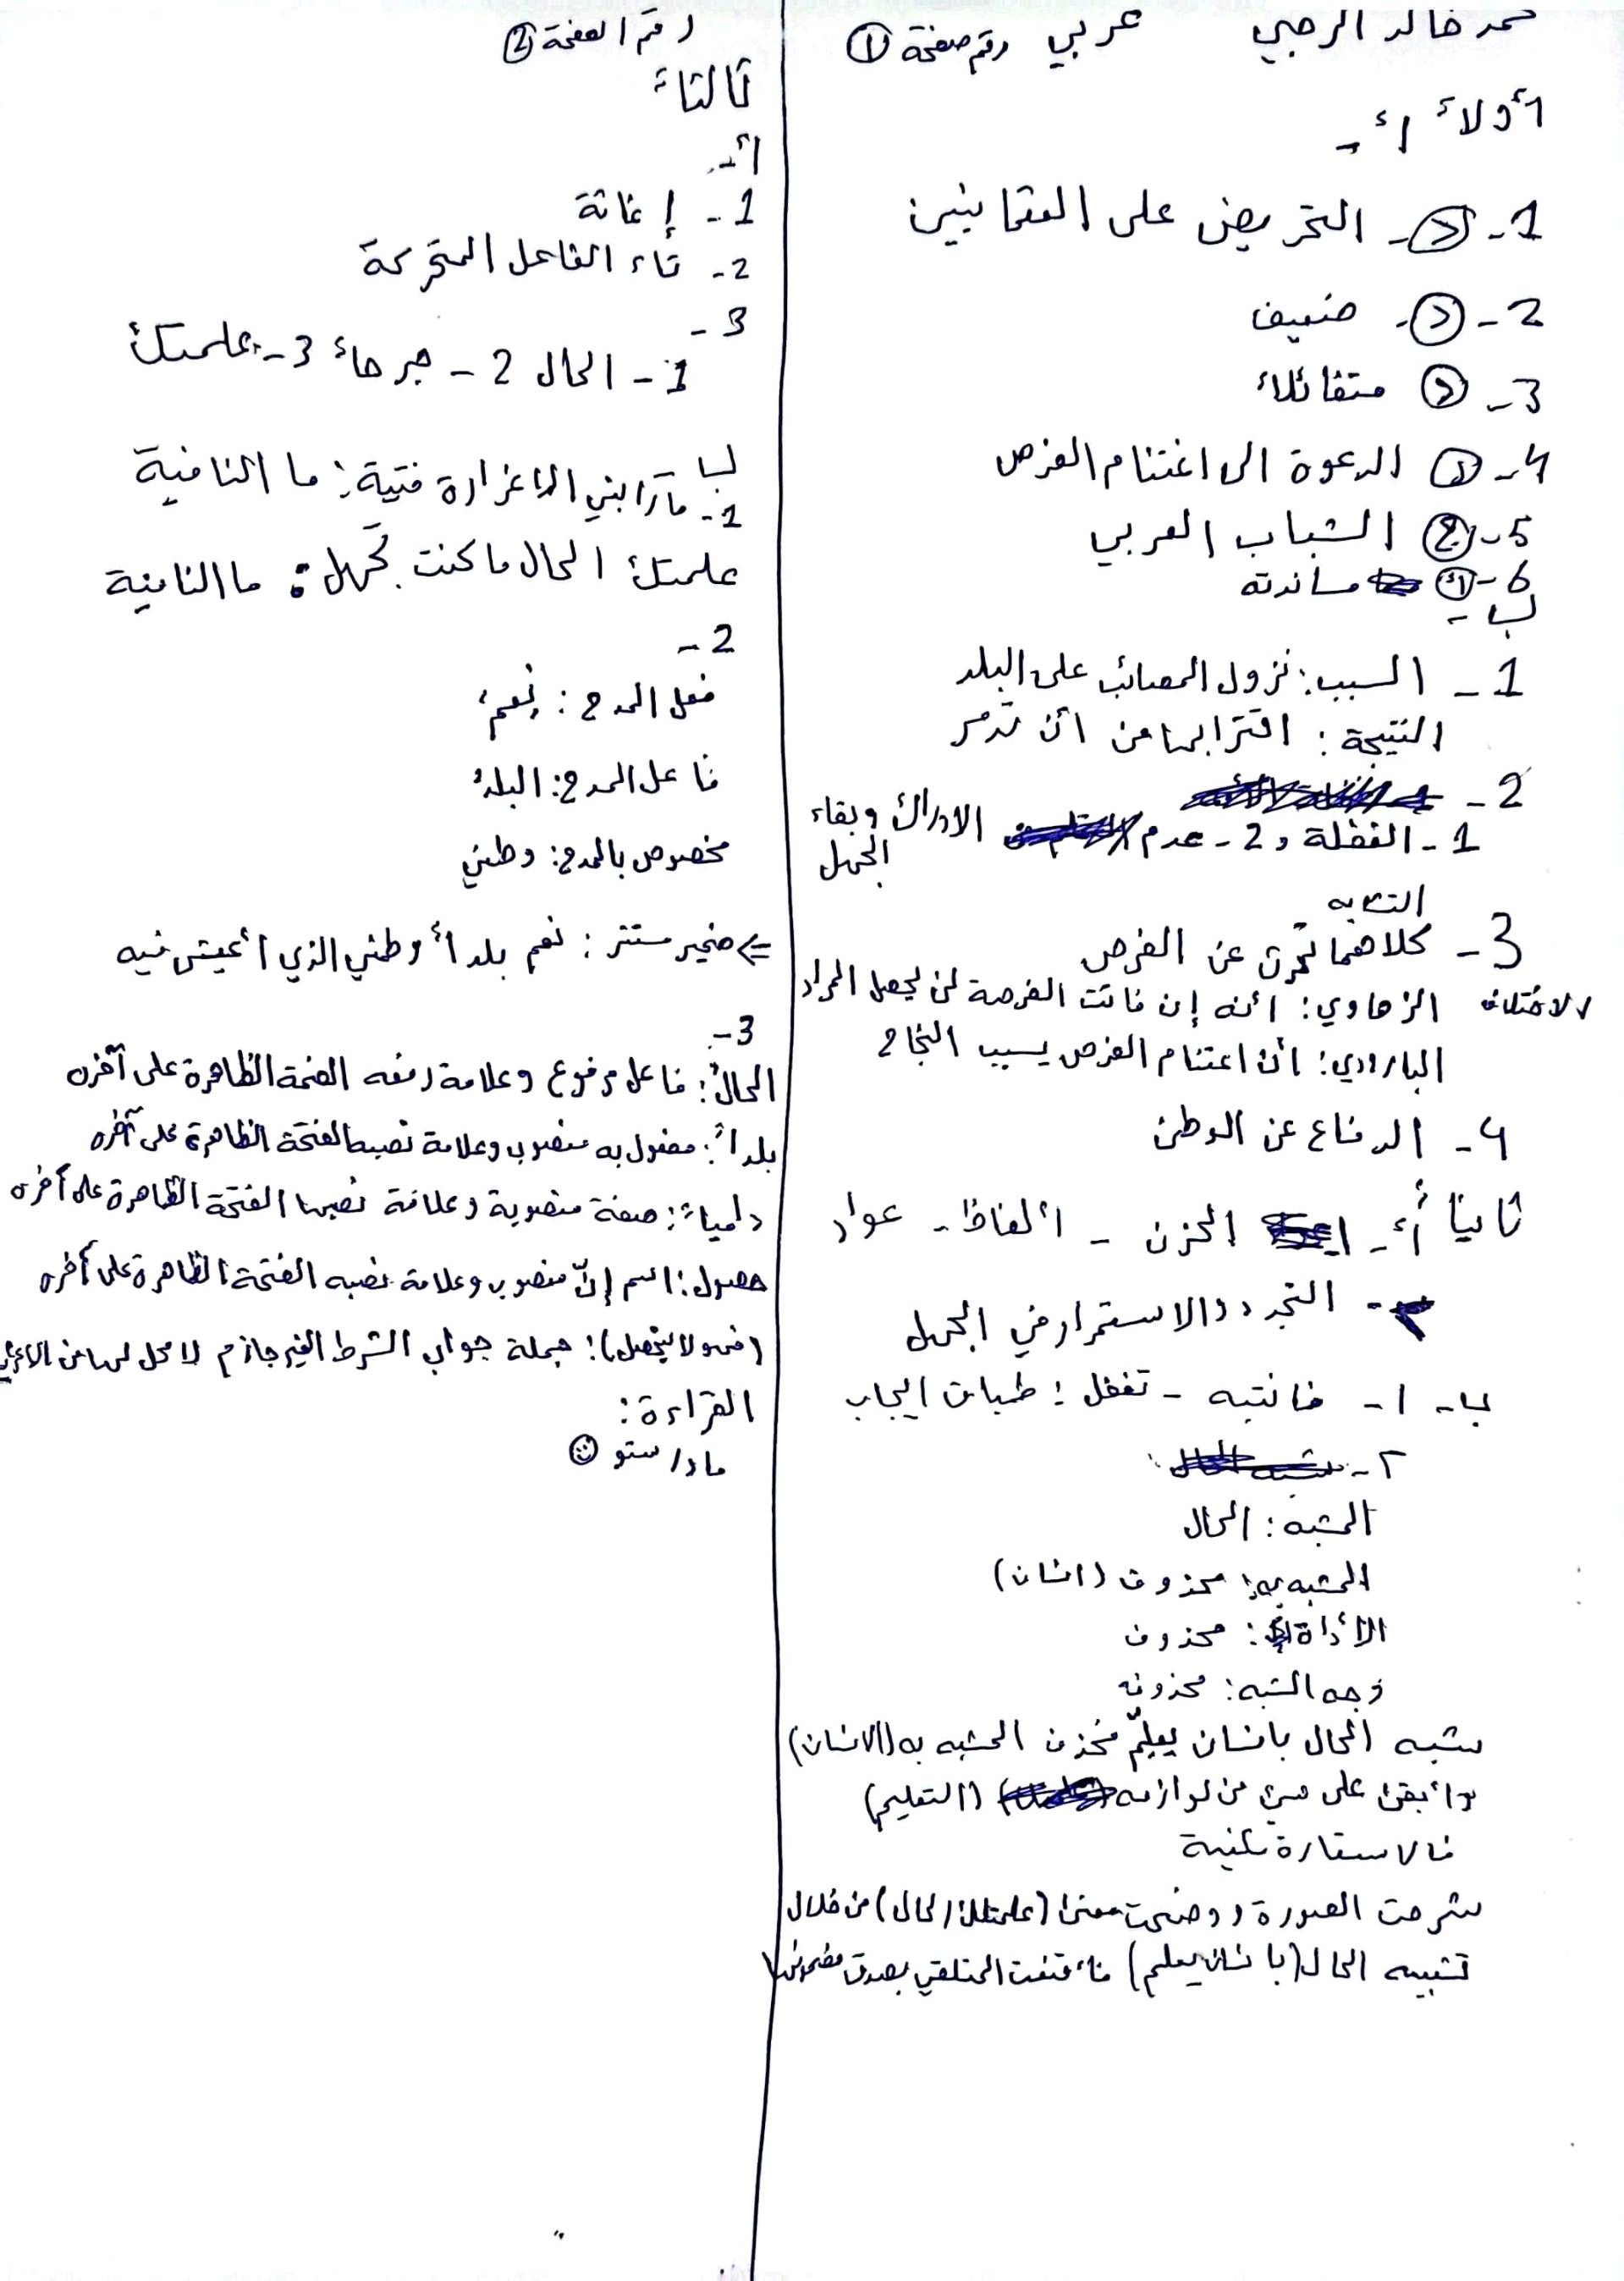 محمد خالد الرجبي عربي رقم صفحة ①
أولاً أ-
1- (د)- التحريض على العثمانيين
2- (د)- ضعيف
3- (د) متفائلاً
4- (د) الدعوة الى اغتنام الفرص
5- (ج) الشباب العربي
6- (أ) مساندته
ب-
1- السبب: نزول المصائب على البلد
النتيجة: اقترابها من أن تدمر
2-
1- الغفلة و 2- عدم الادراك وبقاء
الجهل
3- التشابه
كلاهما تحدث عن الفرص
الاختلاف الزهاوي: أنه إن فاتت الفرصة لن يحصل المراد
البارودي: أن اغتنام الفرص يسبب النجاح
4- الدفاع عن الوطن
ثانياً أ- 1- الحزن - ألفاظ - عواد
2- التجدد والاستمرار في الجهل
ب- ١- فانتبه - تغفل: طباق ايجاب
٢-
المشبه: الحال
المشبه به: محذوف (انسان)
الأداة: محذوف
وجه الشبه: محذوف
شبه الحال بانسان يعلّم فحذف المشبه به (الانسان)
وأبقى على شيء من لوازمه (التعليم)
فالاستعارة مكنية
شرحت الصورة ووضحت معنى (علمتك الحال) من خلال
تشبيه الحال (بانسان يعلم) فأقنعت المتلقي بصدق مضمونها
رقم الصفحة ②
ثالثاً
أ-
1- إغاثة
2- تاء الفاعل المتحركة
3-
1- الحال 2- جرحاً 3- علمتك
ب
1- ما رابني الا غرارة فتية: ما النافية
علمتك الحال ما كنت تجهل: ما النافية
2-
فعل المدح: نِعمَ
فاعل المدح: البلدُ
مخصوص بالمدح: وطني
⇐ ضمير مستتر: نعم بلداً وطني الذي أعيش فيه
3-
الحالُ: فاعل مرفوع وعلامة رفعه الضمة الظاهرة على آخره
بلداً: مفعول به منصوب وعلامة نصبه الفتحة الظاهرة على آخره
دامياً: صفة منصوبة وعلامة نصبها الفتحة الظاهرة على آخره
حصول: اسم إنّ منصوب وعلامة نصبه الفتحة الظاهرة على آخره
(فهو لا يتحصل): جملة جواب الشرط الغير جازم لا محل لها من الاعراب
القراءة:
مادرستو ☺